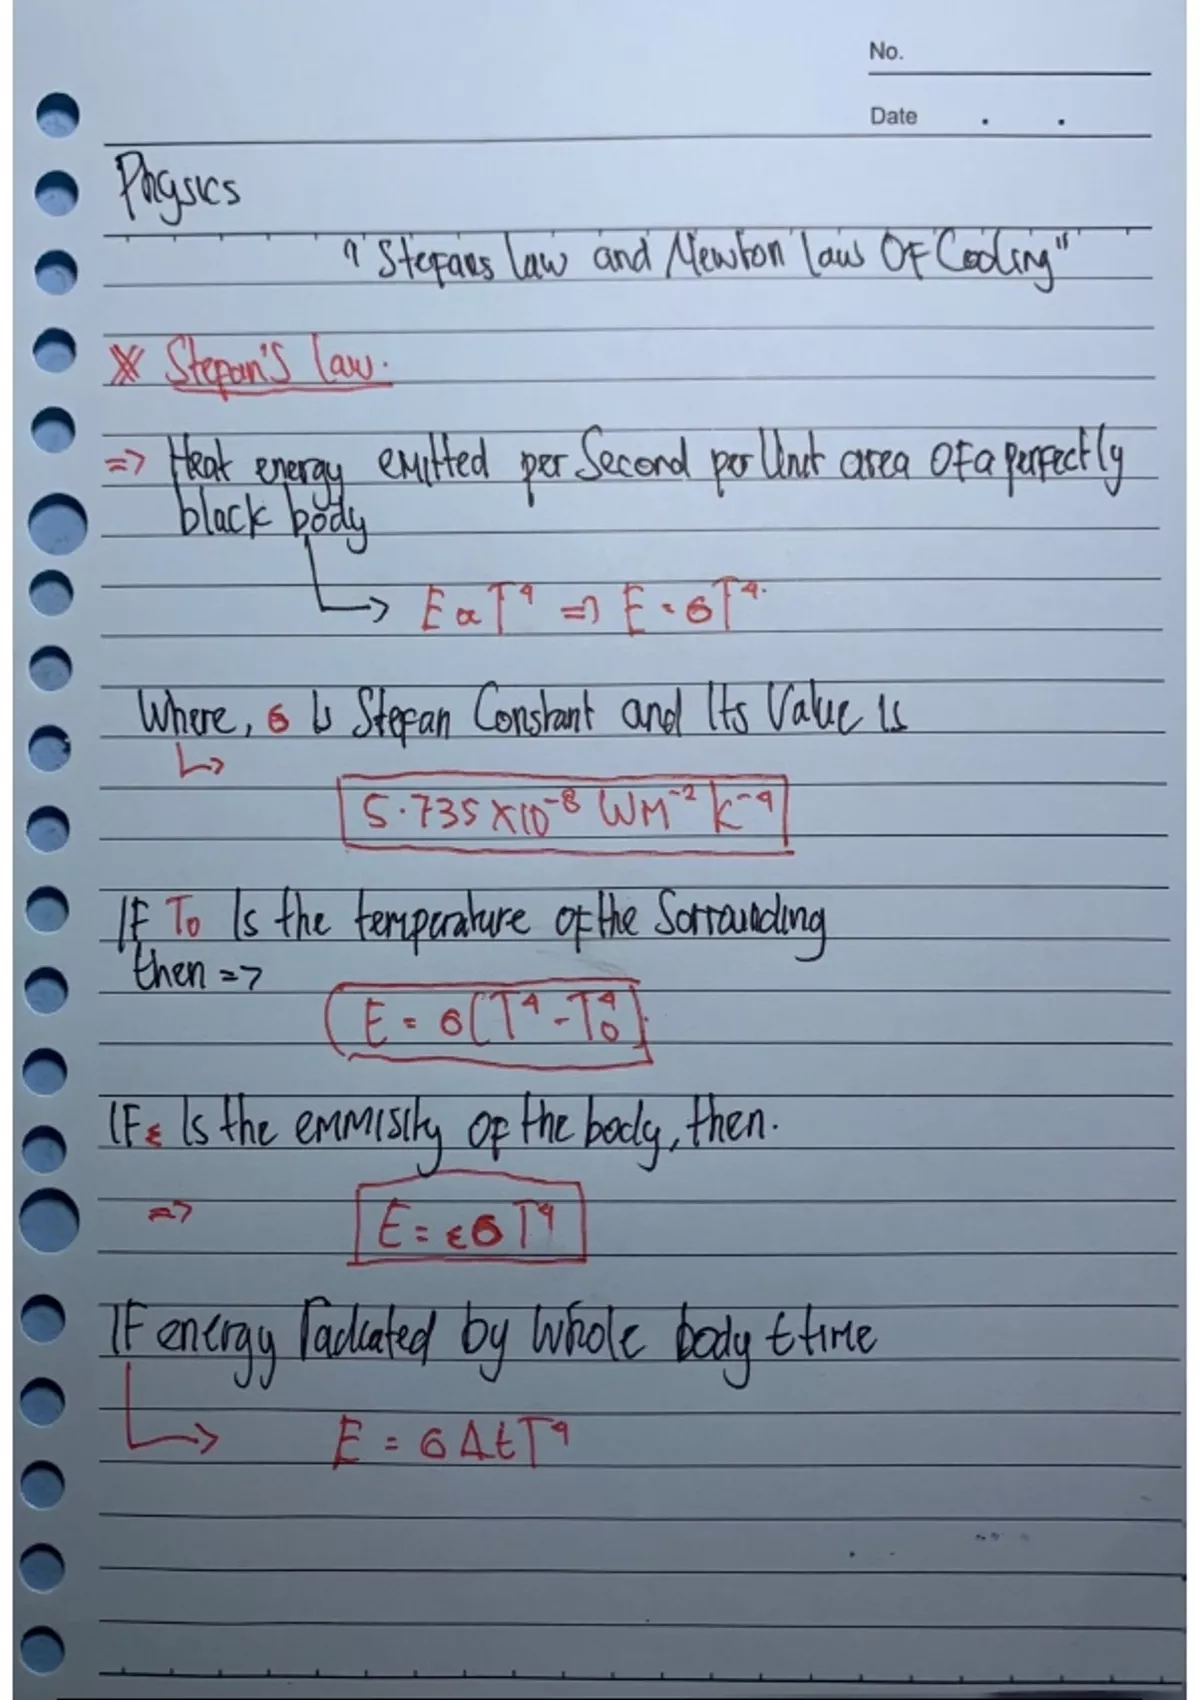 No.
Date . .
Physics
"Stefans law and Newton law OF Cooling"
※ Stefan's law.
=> Heat energy emitted per Second per Unit area OF a perfectly
black body
↳ E ∝ T⁴ => E = σT⁴.
Where, σ is Stefan Constant and Its Value is
↳
5.735 X10⁻⁸ WM⁻² K⁻⁴
IF T₀ Is the temperature of the Sorrounding
then =>
E = σ(T⁴ - T₀⁴)
IF ε Is the emmisity OF the body, then.
=> E = εσT⁴
IF energy radiated by whole body t time
↳ E = σAtT⁴